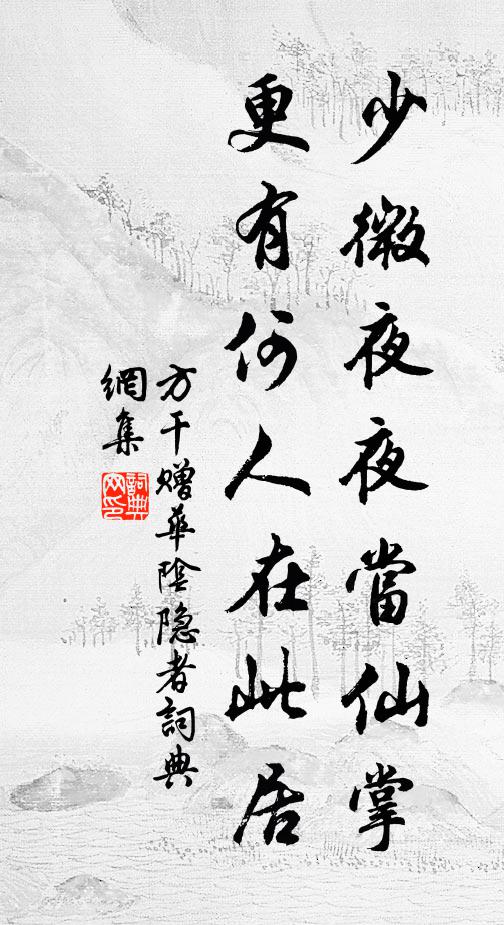 少微夜夜當仙掌
更有何人在此居
方干赠華陰隐者詞典
網集
詞典
网印